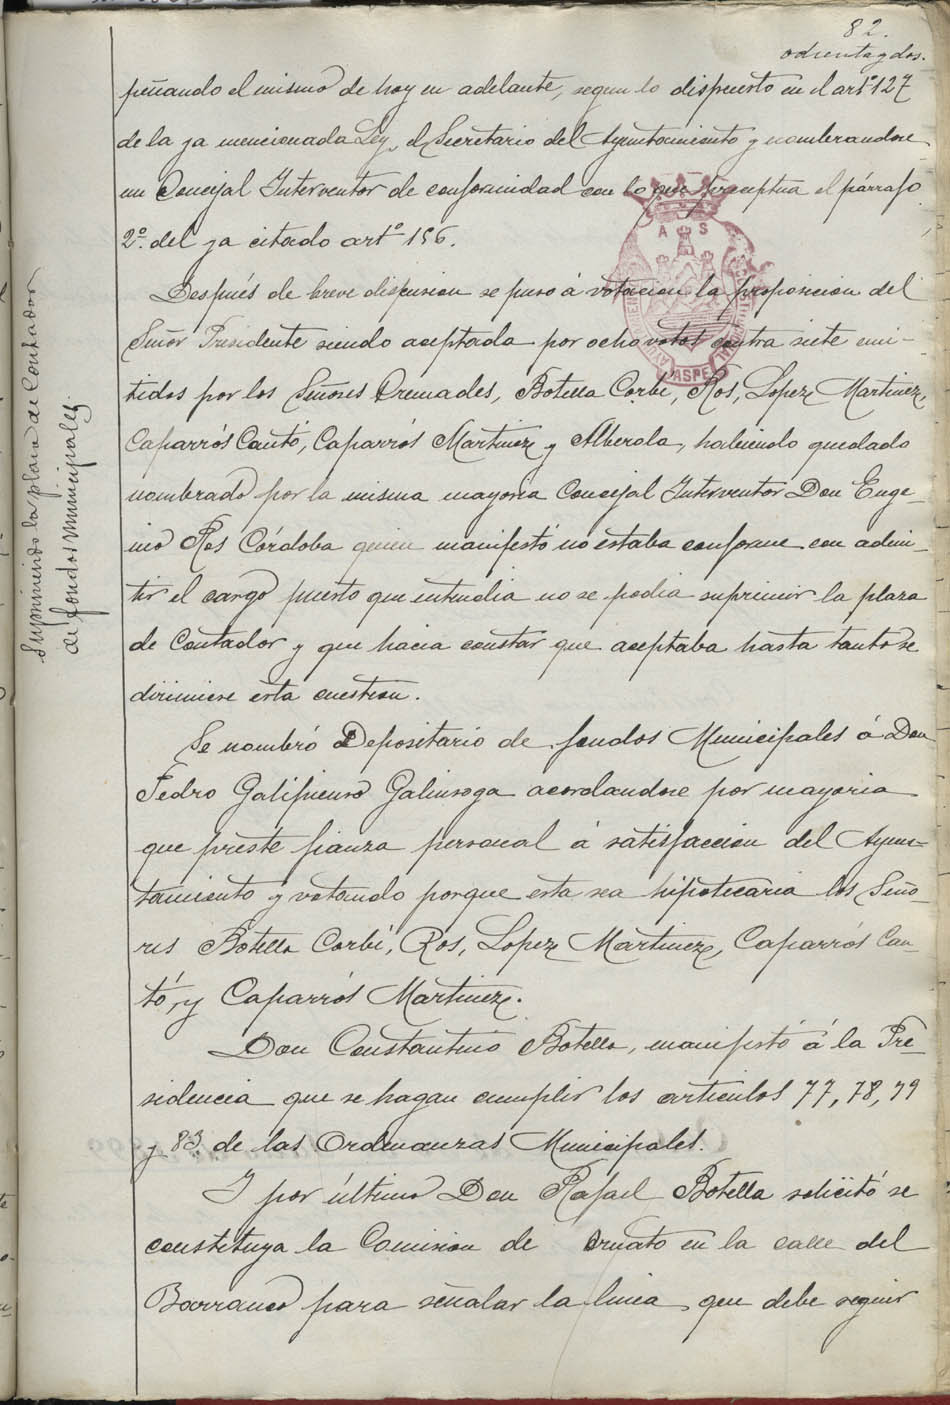 82.
ochenta y dos.
peñando el mismo de hoy en adelante, segun lo dispuesto en el artº 127
de la ya mencionada Ley, el Secretario del Ayuntamiento y nombrandose
un Concejal Interventor de conformidad con lo que preceptua el párrafo
2º del ya citado artº 156.
Suprimiendo la plaza de Contador
de fondos Municipales.
Después de breve discusion se puso á votacion la proposicion del
Señor Presidente siendo aceptada por ocho votos contra siete emi-
tidos por los Señores Cremades, Botella Corbí, Ros, Lopez Martinez,
Caparrós Cantó, Caparrós Martinez y Alberola, habiendo quedado
nombrado por la misma mayoria Concejal Interventor Don Euge-
nio Ros Córdoba quien manifestó no estaba conforme con admi-
tir el cargo puesto que entendia no se podia suprimir la plaza
de Contador y que hacia constar que aceptaba hasta tanto se
dirimiese esta cuestion.
Se nombró Depositario de fondos Municipales á Don
Pedro Galipienso Galinsoga acordandose por mayoria
que preste fianza personal á satisfaccion del Ayun-
tamiento y votando porque esta sea hipotecaria los Seño-
res Botella Corbí, Ros, Lopez Martinez, Caparrós Can-
tó, y Caparrós Martinez.
Don Constantino Botella, manifestó á la Pre-
sidencia que se hagan cumplir los articulos 77, 78, 79
y 83 de las Ordenanzas Municipales.
Y por último Don Rafael Botella solicitó se
constituya la Comision de Ornato en la calle del
Barranco para señalar la linea que debe seguir
ASPE